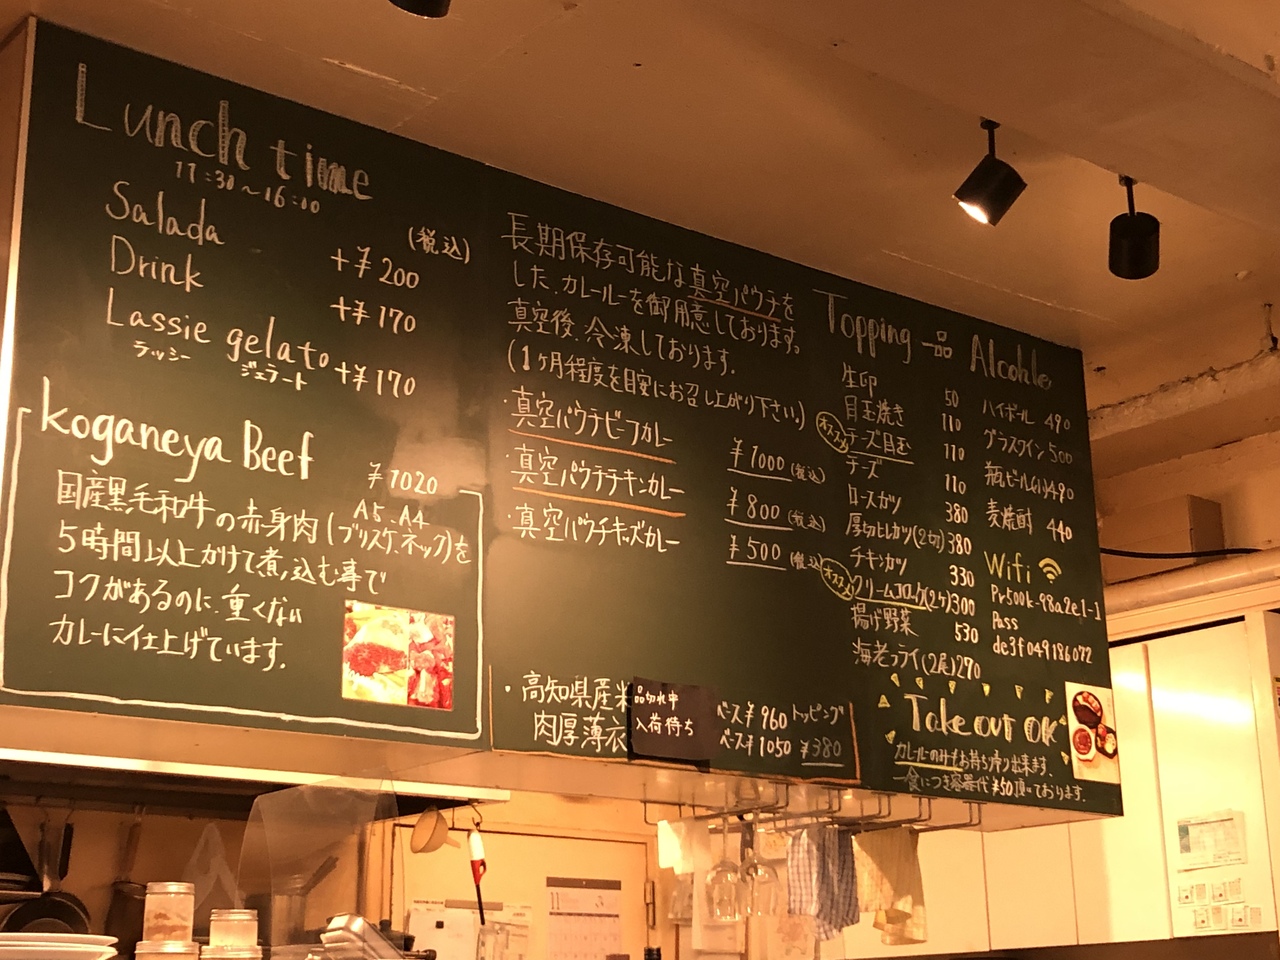 Lunch time
11:30~16:00
(税込)
Salada +¥200
Drink +¥170
Lassie gelato +¥170
ラッシー ジェラート
koganeya Beef ¥1020
A5、A4
国産黒毛和牛の赤身肉(ブリスケ、ネック)を
5時間以上かけて煮込む事で
コクがあるのに、重くない
カレーに仕上げています。
長期保存可能な真空パウチを
した、カレールーを御用意しております。
真空後、冷凍しております。
(1ヶ月程度を目安にお召し上がり下さい)
・真空パウチビーフカレー ¥1000(税込)
・真空パウチチキンカレー ¥800(税込)
・真空パウチキッズカレー ¥500(税込)
・高知県産米
肉厚薄衣
品切れ中
入荷待ち
ベース¥960 トッピング
ベース¥1050 ¥380
Topping 一品
生卵 50
目玉焼き 110
オススメ チーズ目玉 110
チーズ 110
ロースカツ 380
厚切ヒレカツ(2切) 380
チキンカツ 330
オススメ クリームコロッケ(2ケ) 300
揚げ野菜 530
海老フライ(2尾) 270
Alcohle
ハイボール 490
グラスワイン 500
瓶ビール(小) 490
麦焼酎 440
Wifi
Pr500k-98a2e1-1
Pass
de3f049186072
Take out OK
カレールーのみもお持ち帰り出来ます、
一食につき容器代¥50頂いております。
11